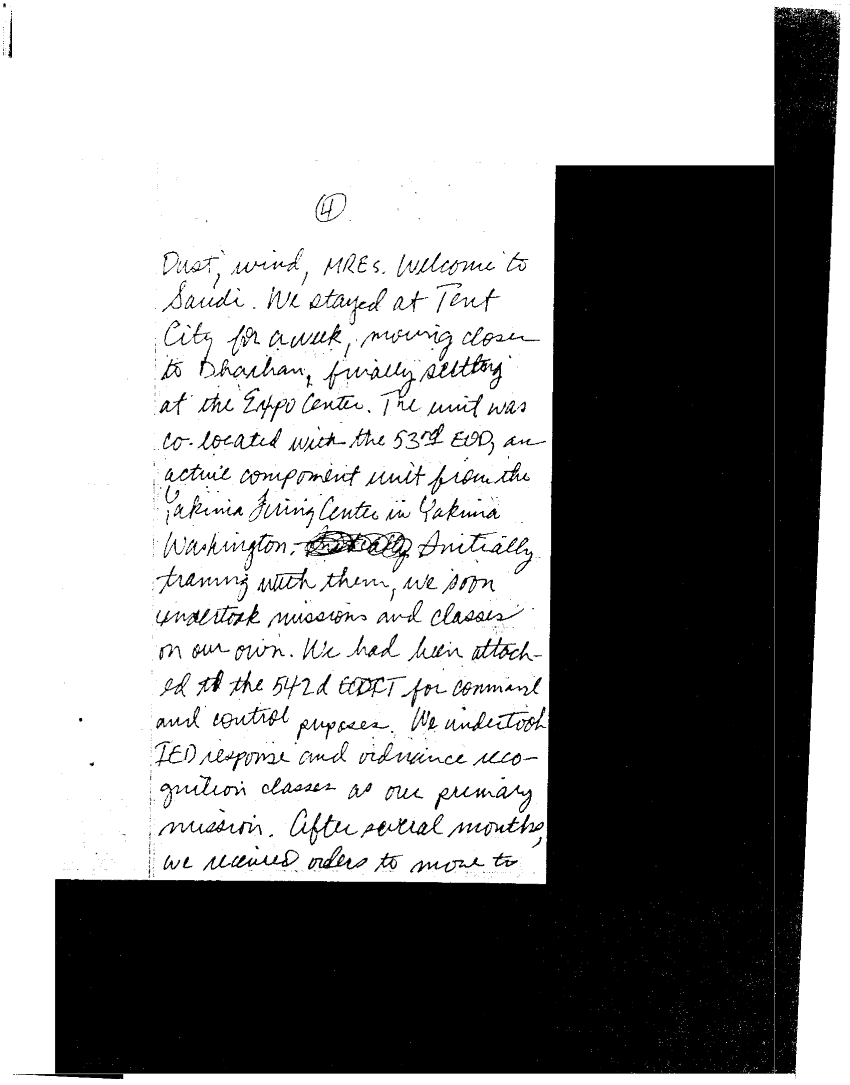 4
Dust, wind, MREs. Welcome to
Saudi. We stayed at Tent
City for a week, moving closer
to Dharhan, finally settling
at the Expo Center. The unit was
co-located with the 53rd EOD, an
active component unit from the
Yakima Firing Center in Yakima
Washington. Initially
training with them, we soon
undertook missions and classes
on our own. We had been attach-
ed to the 542d for command
and control puposes. We undertook
IED response and ordnance reco-
gnition classes as our primary
mission. After several months,
we received orders to move to